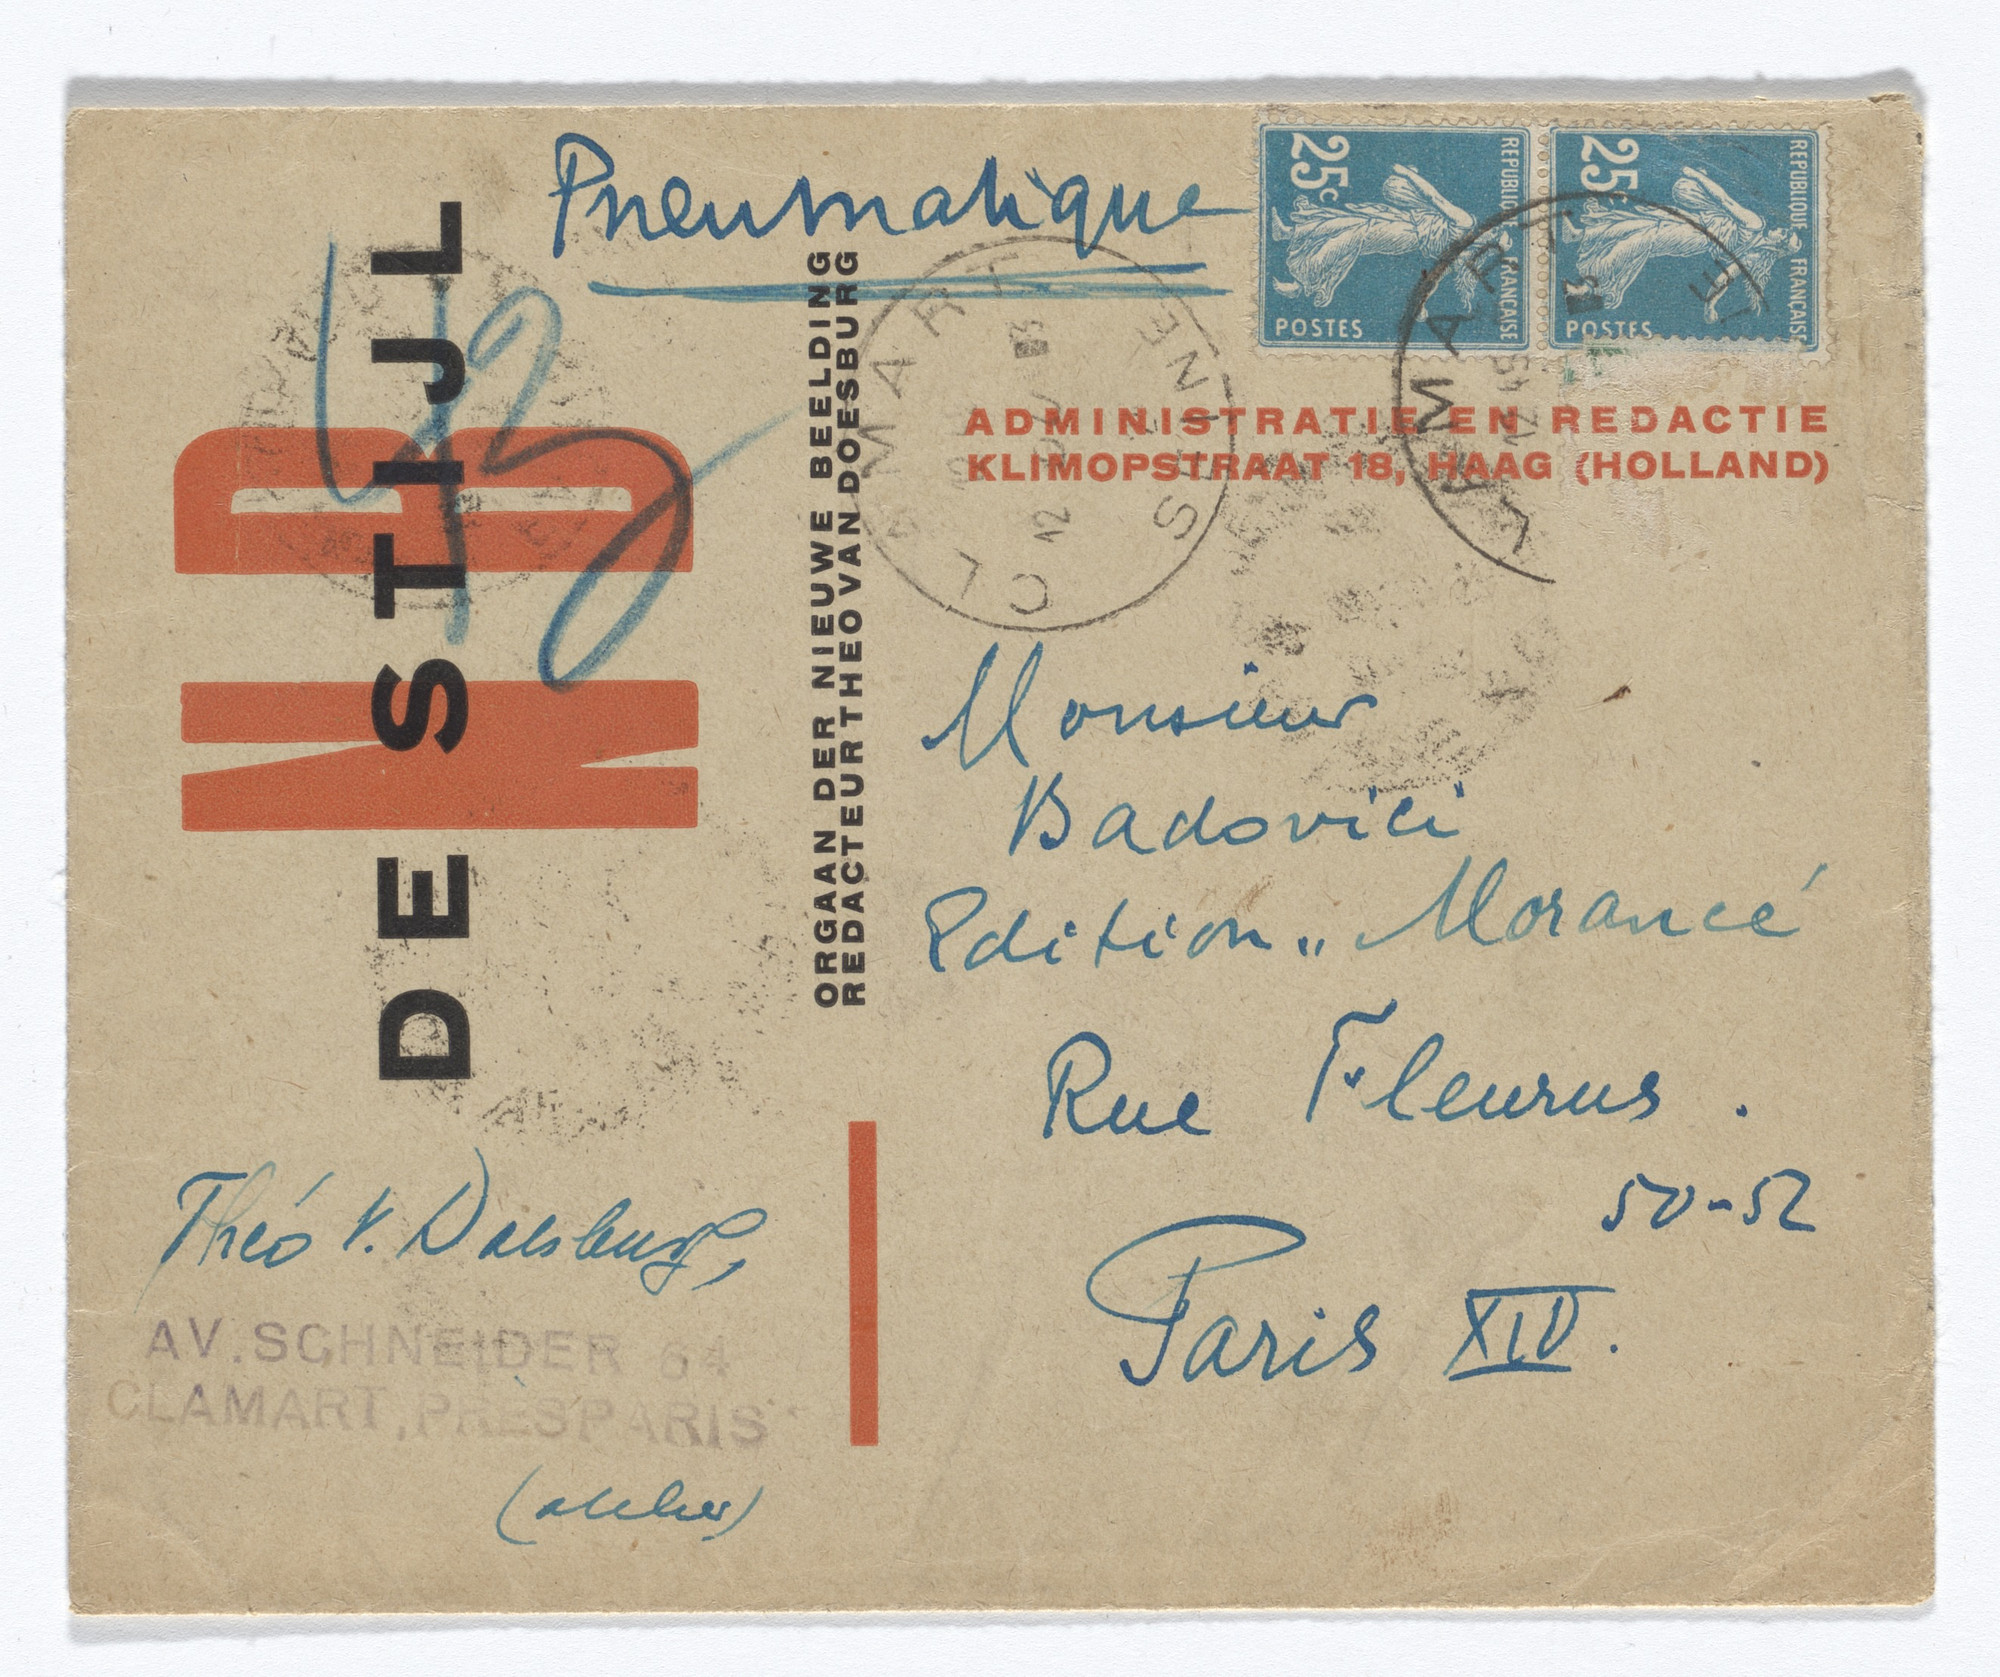 Pneumatique
25c
REPUBLIQUE FRANÇAISE
POSTES
25c
REPUBLIQUE FRANÇAISE
POSTES
CLAMART
SEINE
12
CLAMART
12
ADMINISTRATIE EN REDACTIE
KLIMOPSTRAAT 18, HAAG (HOLLAND)
NB
DE STIJL
ORGAAN DER NIEUWE BEELDING
REDACTEUR THEO VAN DOESBURG
Monsieur
Badovici
Edition „Morancé
Rue Fleurus.
50-52
Paris XIV.
Théo v. Doesburg,
AV. SCHNEIDER 64
CLAMART, PRÈS PARIS
(atelier)